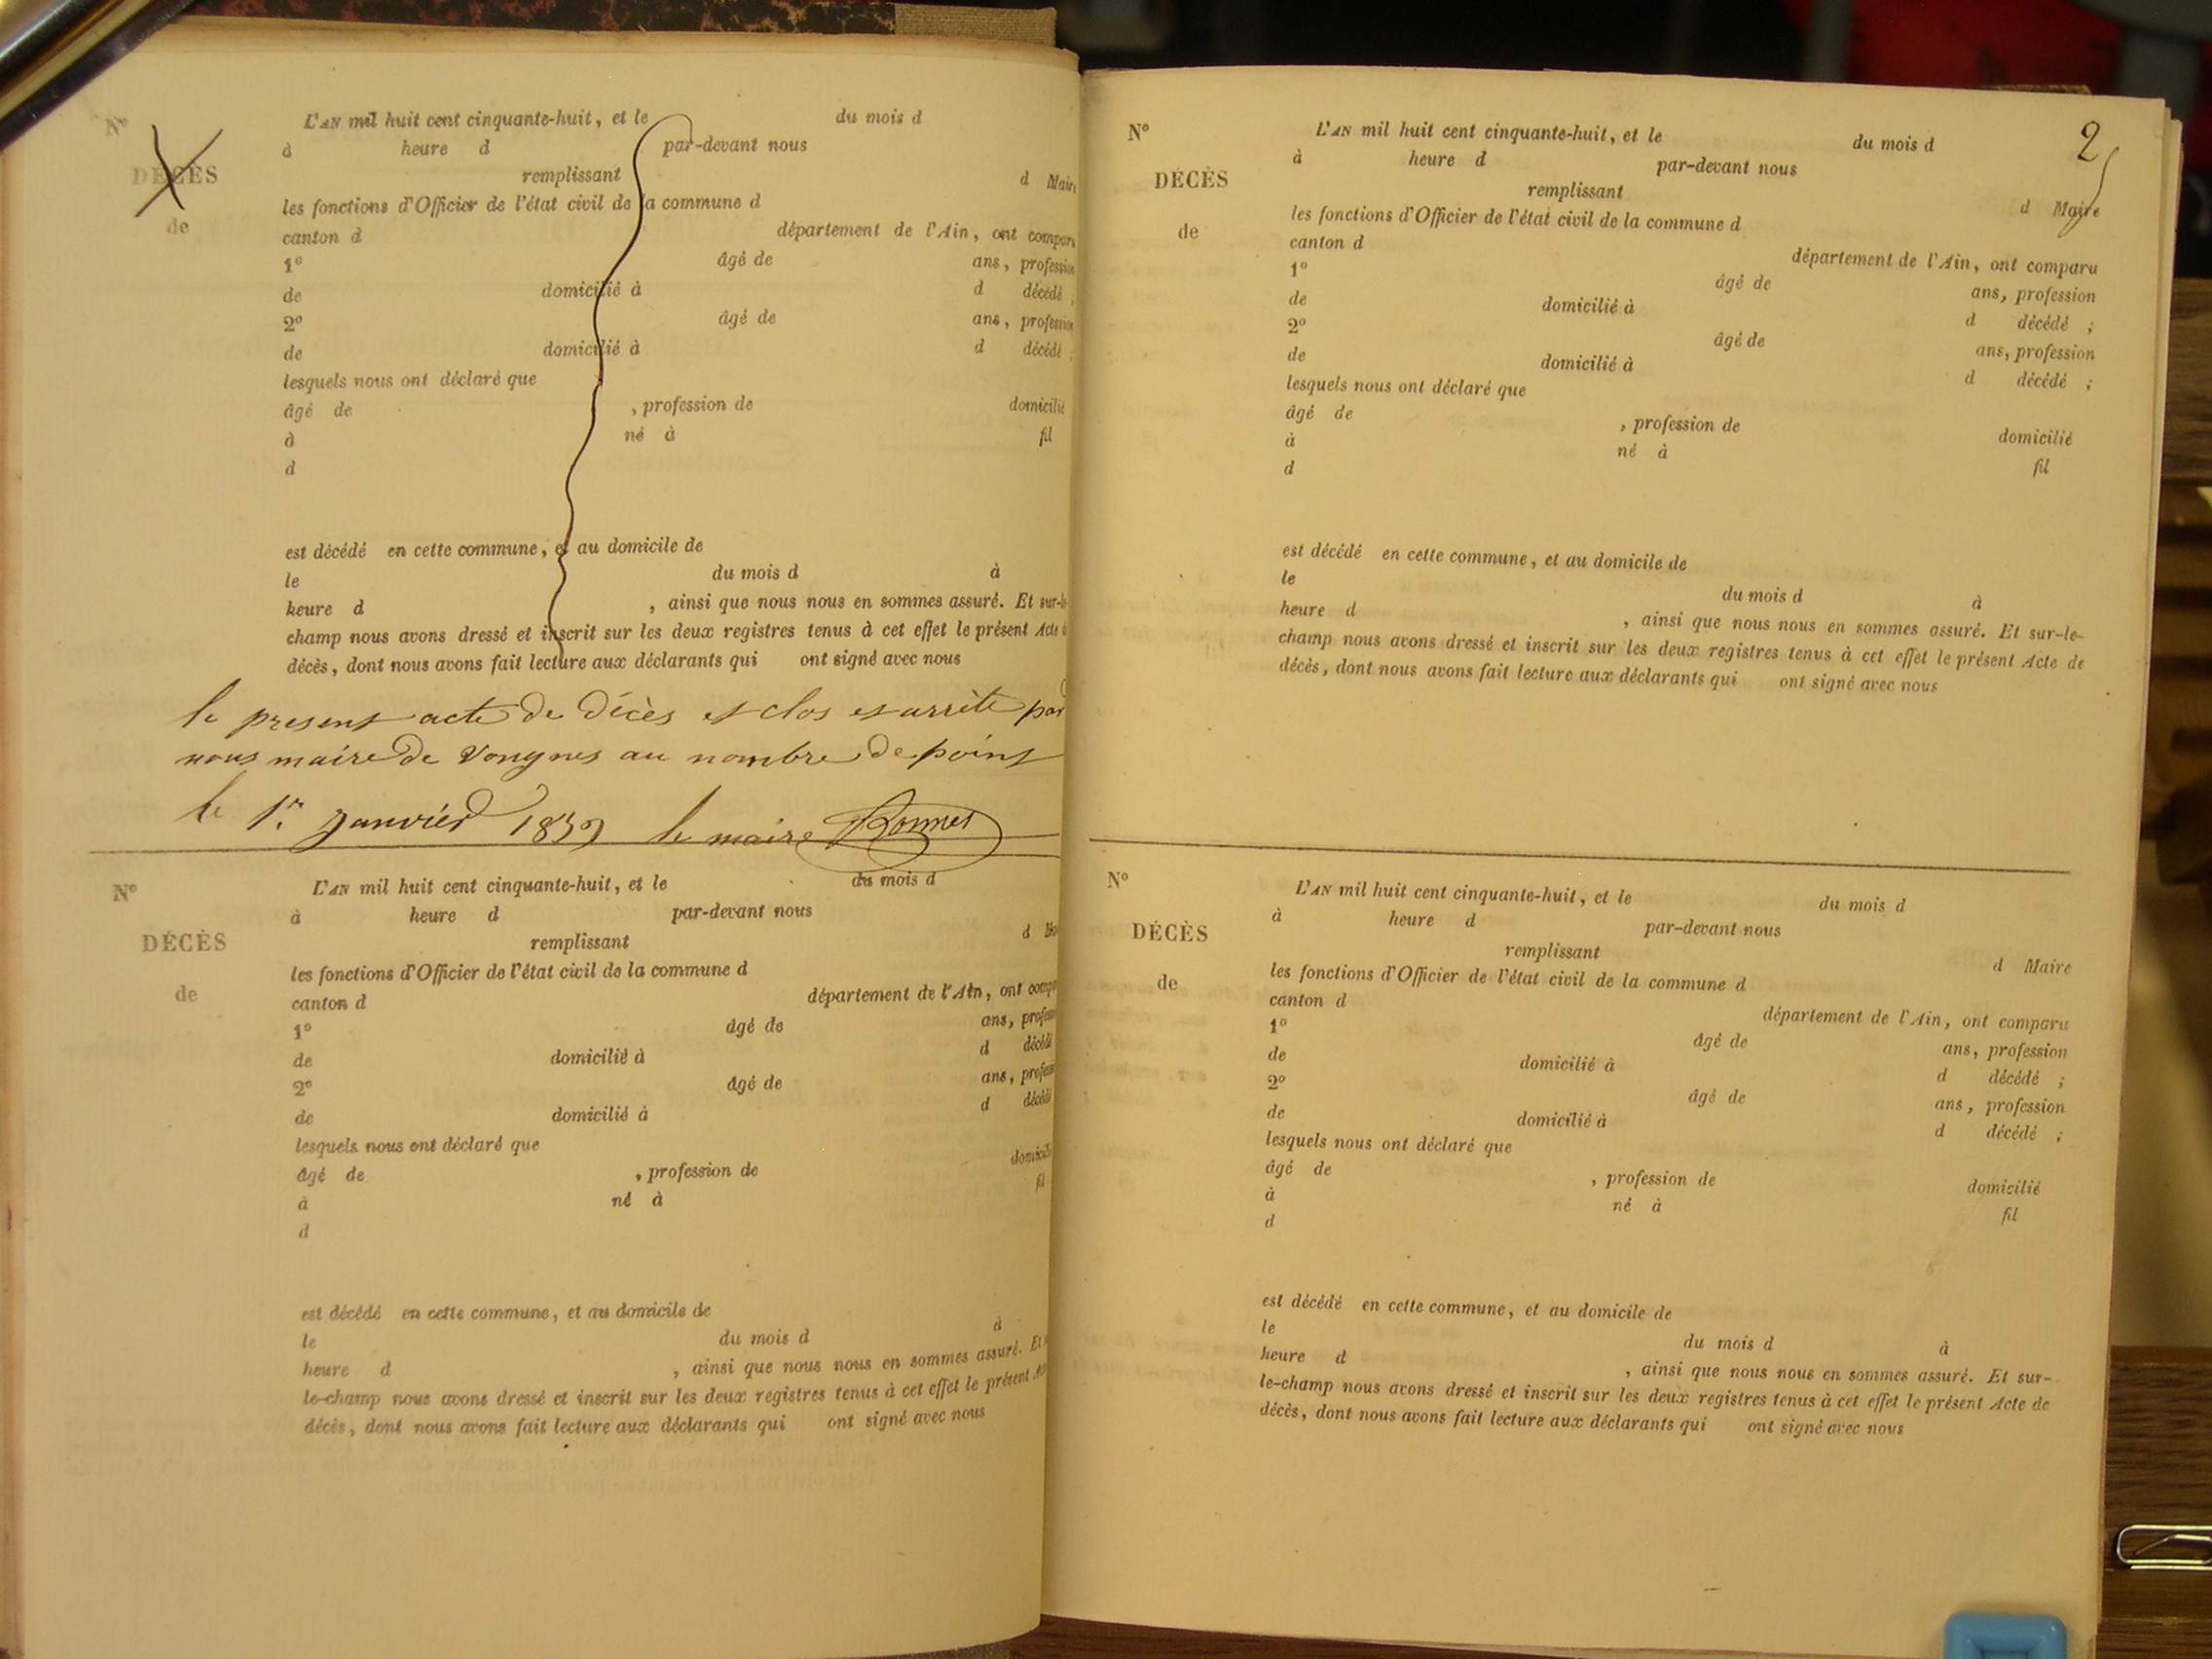 N°
DÉCÈS
de
L'AN mil huit cent cinquante-huit, et le du mois d
à heure d par-devant nous
remplissant d Maire
les fonctions d'Officier de l'état civil de la commune d
canton d département de l'Ain, ont comparu
1° âgé de ans, profession
de domicilié à d décédé ;
2° âgé de ans, profession
de domicilié à d décédé ;
lesquels nous ont déclaré que
âgé de , profession de domicilié
à né à fil
d
est décédé en cette commune, et au domicile de
le du mois d à
heure d , ainsi que nous nous en sommes assuré. Et sur-le-
champ nous avons dressé et inscrit sur les deux registres tenus à cet effet le présent Acte d
décès, dont nous avons fait lecture aux déclarants qui ont signé avec nous
le present acte de Décès est clos et arrété par
nous maire de Vongnes au nombre de point
le 1er Janvier 1859 le maire Bonnet
N°
DÉCÈS
de
L'AN mil huit cent cinquante-huit, et le du mois d
à heure d par-devant nous
remplissant d Ma
les fonctions d'Officier de l'état civil de la commune d
canton d département de l'Ain, ont compa
1° âgé de ans, profess
de domicilié à d décédé
2° âgé de ans, profess
de domicilié à d décédé
lesquels nous ont déclaré que
âgé de , profession de domicili
à né à fil
d
est décédé en cette commune, et au domicile de
le du mois d à
heure d , ainsi que nous nous en sommes assuré. Et
le-champ nous avons dressé et inscrit sur les deux registres tenus à cet effet le présent Ac
décès, dont nous avons fait lecture aux déclarants qui ont signé avec nous
2
N°
DÉCÈS
de
L'AN mil huit cent cinquante-huit, et le du mois d
à heure d par-devant nous
remplissant d Maire
les fonctions d'Officier de l'état civil de la commune d
canton d département de l'Ain, ont comparu
1° âgé de ans, profession
de domicilié à d décédé ;
2° âgé de ans, profession
de domicilié à d décédé ;
lesquels nous ont déclaré que
âgé de , profession de domicilié
à né à fil
d
est décédé en cette commune, et au domicile de
le du mois d à
heure d , ainsi que nous nous en sommes assuré. Et sur-le-
champ nous avons dressé et inscrit sur les deux registres tenus à cet effet le présent Acte de
décès, dont nous avons fait lecture aux déclarants qui ont signé avec nous
N°
DÉCÈS
de
L'AN mil huit cent cinquante-huit, et le du mois d
à heure d par-devant nous
remplissant d Maire
les fonctions d'Officier de l'état civil de la commune d
canton d département de l'Ain, ont comparu
1° âgé de ans, profession
de domicilié à d décédé ;
2° âgé de ans, profession
de domicilié à d décédé ;
lesquels nous ont déclaré que
âgé de , profession de domicilié
à né à fil
d
est décédé en cette commune, et au domicile de
le du mois d à
heure d , ainsi que nous nous en sommes assuré. Et sur-
le-champ nous avons dressé et inscrit sur les deux registres tenus à cet effet le présent Acte de
décès, dont nous avons fait lecture aux déclarants qui ont signé avec nous